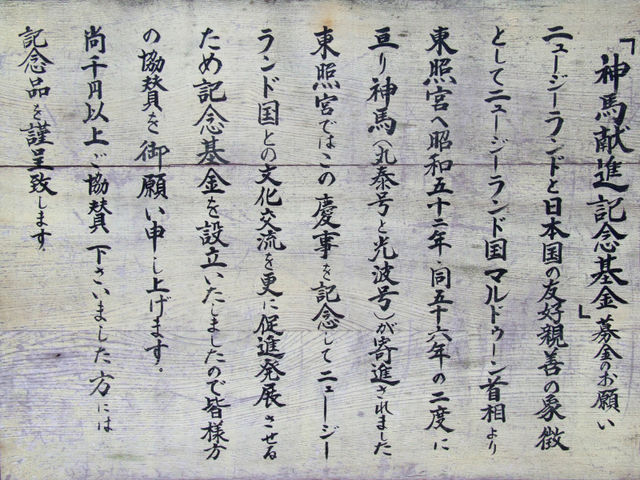 「神馬献進記念基金」募金のお願い
ニュージーランドと日本国の友好親善の象徴
としてニュージーランド国マルドゥーン首相より
東照宮へ昭和五十二年・同五十六年の二度に
亘り神馬(丸泰号と光波号)が寄進されました
東照宮ではこの慶事を記念してニュージー
ランド国との文化交流を更に促進発展させる
ため記念基金を設立いたしましたので皆様方
の協賛を御願い申し上げます。
尚千円以上ご協賛下さいました方には
記念品を謹呈致します。